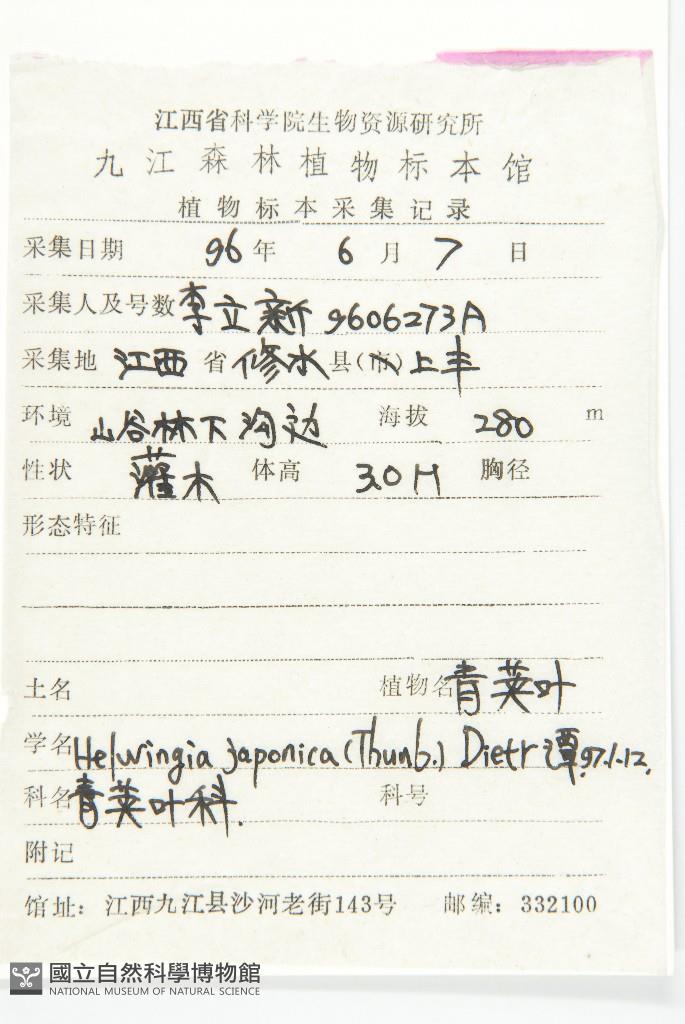 江西省科学院生物资源研究所
九江森林植物标本馆
植物标本采集记录
采集日期 96 年 6 月 7 日
采集人及号数 李立新 9606273A
采集地 江西 省 修水 县(市) 上丰
环境 山谷林下沟边 海拔 280 m
性状 灌木 体高 3.0M 胸径
形态特征
土名 植物名 青荚叶
学名 Helwingia japonica (Thunb.) Dietr 谭 97.1.12.
科名 青荚叶科. 科号
附记
馆址：江西九江县沙河老街143号 邮编：332100
國立自然科學博物館
NATIONAL MUSEUM OF NATURAL SCIENCE